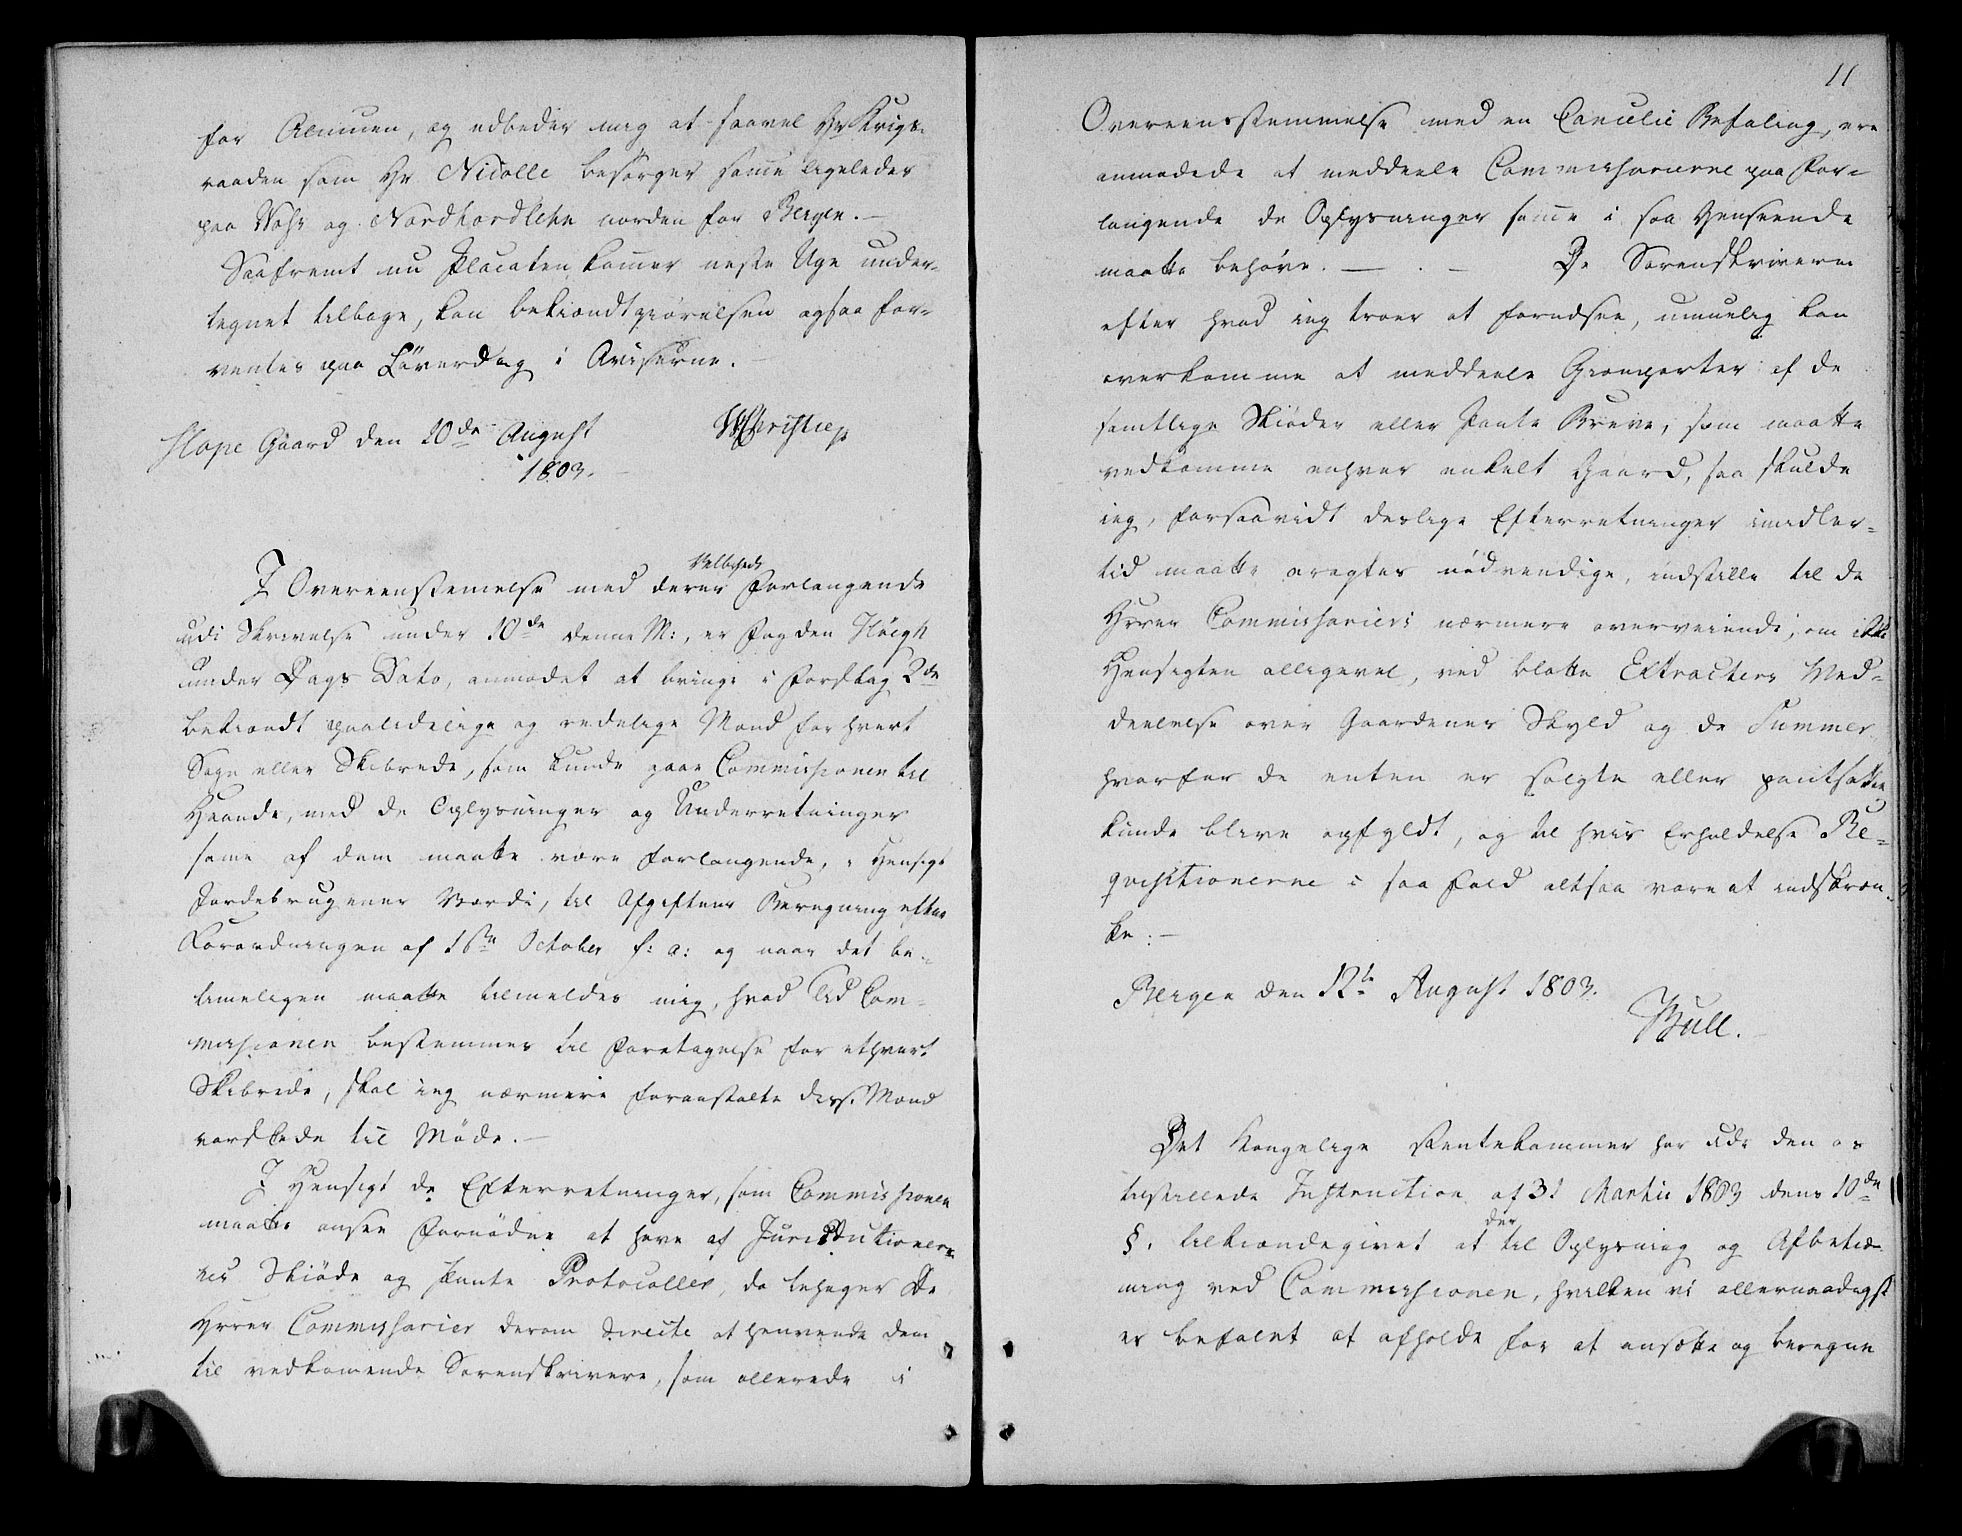 for Almuen, og udbeder mig at saavel Hr Krigs-
raaden som Hr Nicolle besørger same ligeledes
paa Voss og Nordhordlehn norden for Bergen.-
Saafremt nu Placaten komer neste Uge under-
tegnet tilbage, kan bekiændtgiørelsen ogsaa for-
ventes paa Løverdag i Aviserne.
Hope Gaard den 10de August WChristie
1803.
I Overeenstemelse med deres Velbrhds Forlangende
udi Skrivelse under 10de denne M:, er Fogden Høegh
under Dags Dato, anmodet at bringe i Forslag 2de
bekiendt paalidelige og redelige Mænd for hvert
Sogn eller Skibrede, som kunde gaae Commissionen til
Haande, med de Oplysninger og Underretninger
same af dem maatte være forlangende, i Hensigt
Jordebrugenes Værdi, til Afgiftens Beregning efter
Forordningen af 1ste October f: a: og naar det be-
timeligen maatte tilmeldes mig, hvad Tid Com-
missionen bestemmer til Foretagelse for ethvert
Skibrede, skal ieg nærmere foranstalte diss. Mænd
varslede til Møde.-
I Hensigt de Efterretninger, som Commissionen
maatte ansee fornødne at have af Jurisdictioner-
nes Skiøde og Pante Protocoller, da behager De
Herrer Commissarier derom directe at henvende dem
til vedkomende Sorenskrivere, som allerede i
11
Overeensstemmelse med en Cancelie Befaling, ere
anmodede at meddeele Commissarierne paa For-
langende de Oplysninger same i saa Henseende
maatte behøve. — . — Da Sorenskriverne
efter hvad ieg troer at forudsee, umuelig kan
overkomme at meddeele Gienparter af de
samtlige Skiøder eller Pante Breve, som maatte
vedkomme enhver enkelt Gaard, saa skulde
ieg, forsaavidt deslige Efterretninger imidler-
tid maatte eragtes nødvendige, indstille til de
Herrer Commissariers nærmere overveiende, om ikke
Hensigten alligevel, ved blotte Extracters Med-
deelelse over Gaardenes Skyld og de Summer
hvorfor de enten er solgte eller pantsatte
kunde blive opfyldt, og til hvis Erholdelse Re-
qvisitionerne i saa Fald altsaa vare at indskræn-
ke.-
Bergen den 12te August 1803.
Bull.
Det Kongelige Rentekammer har udi den os
tilstillede Instruction af 31 Martii 1803 dens 10de
§. tilkiendegivet at der til Oplysning og Afbetie-
ning ved Commissionen, hvilken vi allernaadigst
er befalet at afholde for at ansætte og beregne